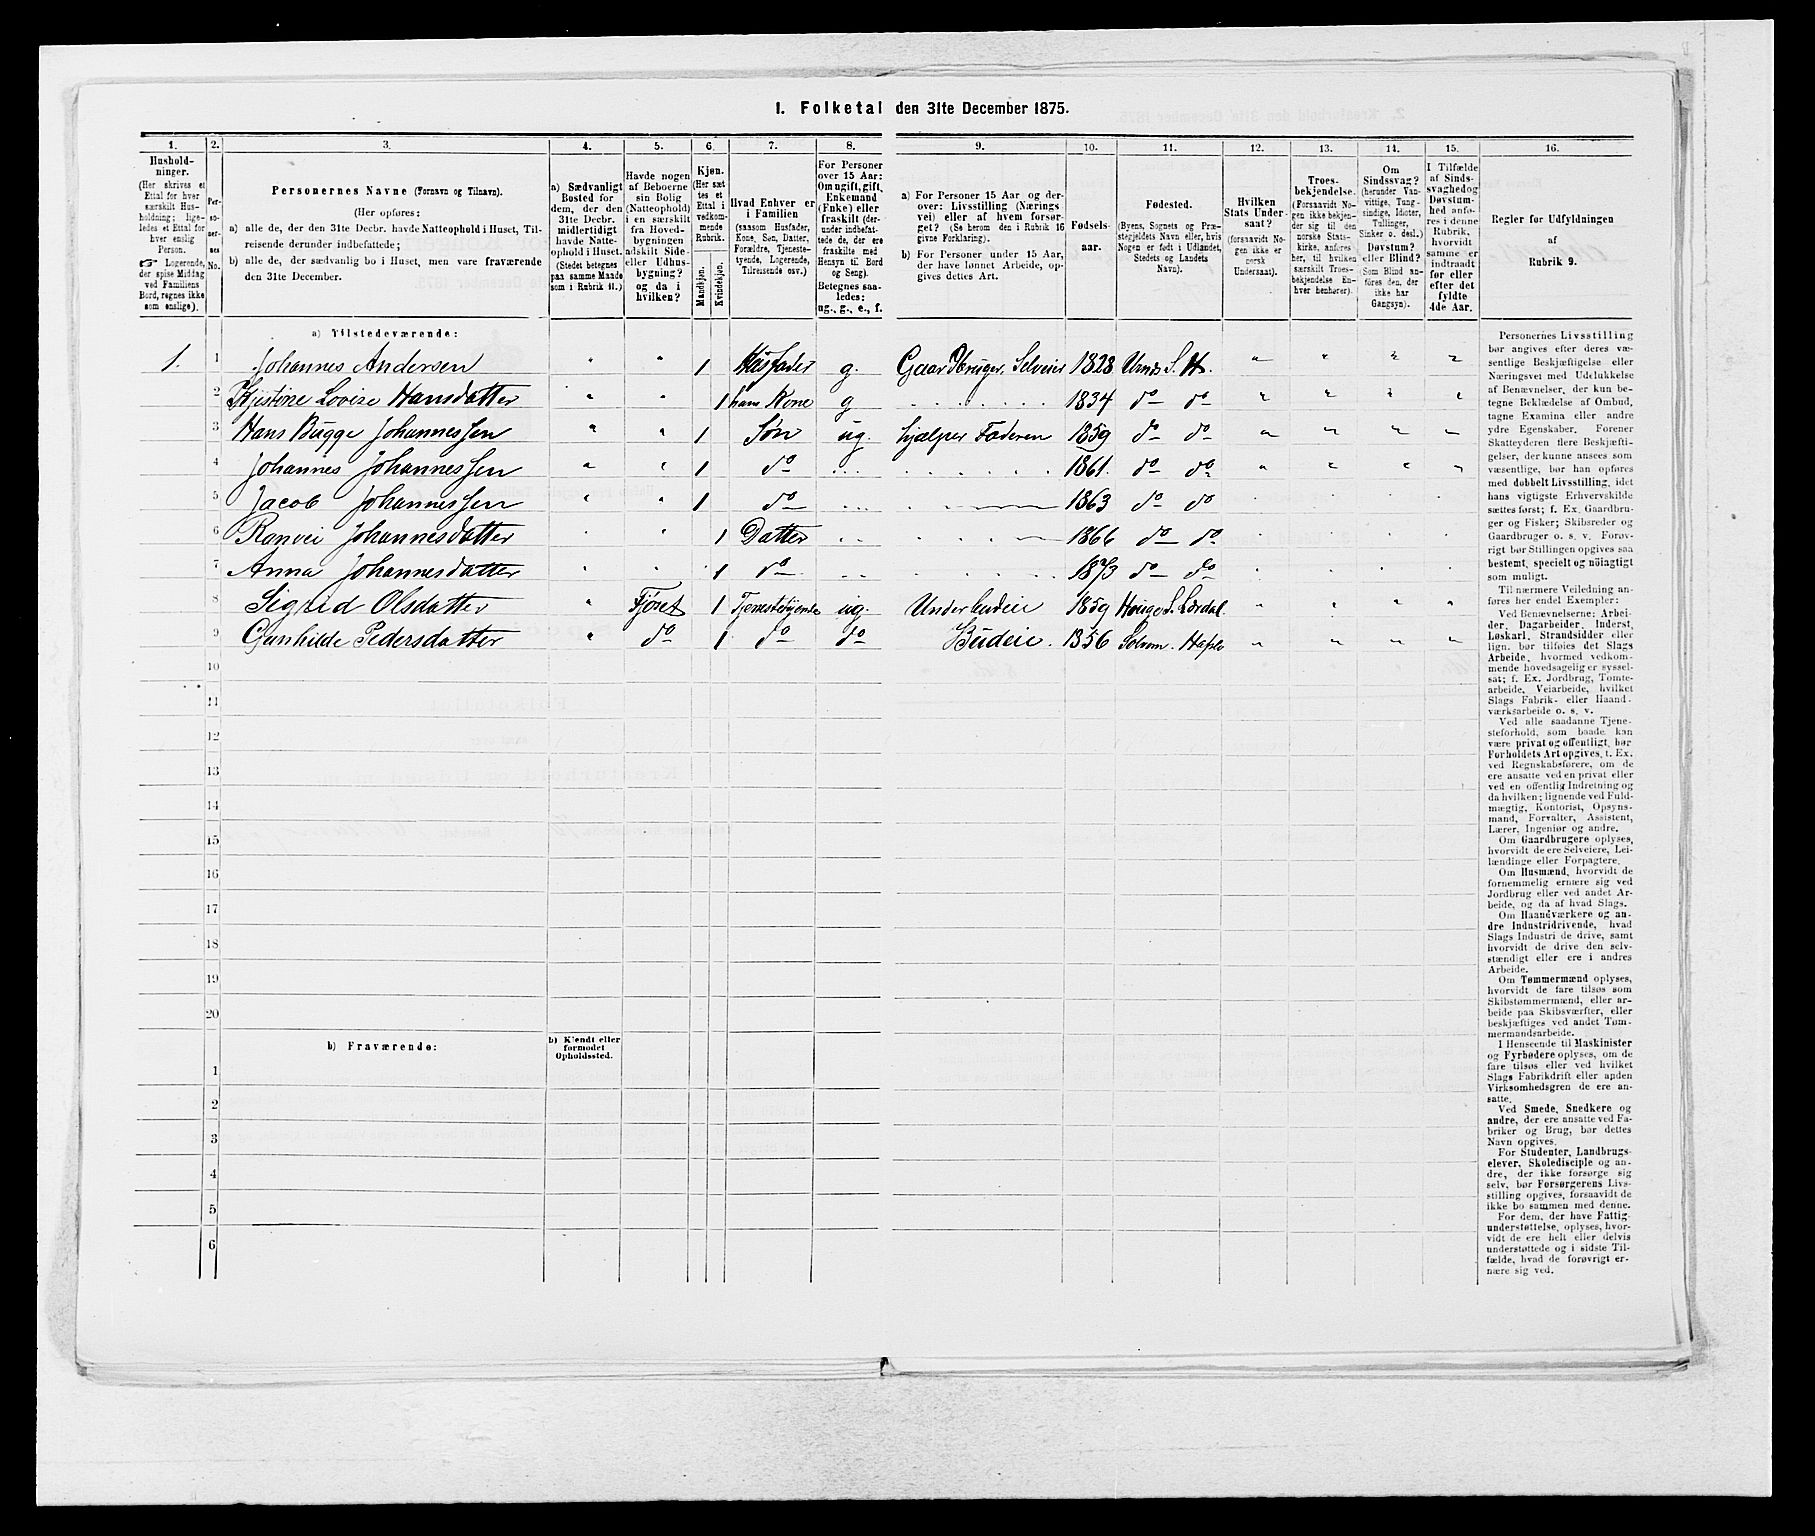 1. Folketal den 31te December 1875.
1. 2. 3. 4. 5. 6. 7. 8. 9. 10. 11. 12. 13. 14. 15. 16.
Hushold-
ninger.
(Her skrives et
Ettal for hver
særskilt Hus-
holdning; lige-
ledes et Ettal for
hver enslig
Person.
☞ Logerende,
der spise Middag
ved Familiens
Bord, regnes ikke
som enslige).
Per-
so-
ner-
nes
No.
Personernes Navne (Fornavn og Tilnavn).
(Her opføres:
a) alle de, der den 31te Decbr. havde Natteophold i Huset, Til-
reisende derunder indbefattede;
b) alle de, der sædvanlig bo i Huset, men vare fraværende
den 31te December.
a) Sædvanligt
Bosted for
dem, der den
31te Decbr.
midlertidigt
havde Natte-
ophold i Huset.
(Stedet betegnes
paa samme Maade
som i Rubrik 11.)
Havde nogen
af Beboerne
sin Bolig
(Natteophold)
i en særskilt
fra Hoved-
bygningen
adskilt Side-
eller Udhus-
bygning?
og da i
hvilken?
Kjøn.
(Her sæt-
tes et
Ettal i
vedkom-
mende
Rubrik.
Mandkjøn.
Kvindekjøn.
Hvad Enhver er
i Familien
(saasom Husfader,
Kone, Søn, Datter,
Forældre, Tjeneste-
tyende, Logerende,
Tilreisende osv.)
For Personer
over 15 Aar:
Om ugift, gift,
Enkemand
(Enke) eller
fraskilt (der-
under indbefat-
tede de, der ere
fraskilte med
Hensyn til Bord
og Seng).
Betegnes saa-
ledes:
ug., g., e., f.
a) For Personer 15 Aar og der-
over: Livsstilling (Nærings-
vei) eller af hvem forsør-
get? (Se herom den i Rubrik 16
givne Forklaring).
b) For Personer under 15 Aar,
der have lønnet Arbeide, op-
gives dettes Art.
Fødsels-
aar.
Fødested.
(Byens, Sognets og Præ-
stegjeldets Navn eller, hvis
Nogen er født i Udlandet,
Stedets og Landets
Navn).
Hvilken
Stats Under-
saat?
(forsaavidt No-
gen ikke er
norsk
Undersaat).
Troes-
bekjendelse.
(Forsaavidt No-
gen ikke bekjen-
der sig til den
norske Stats-
kirke, anføres
her, til hvilken
særskilt Troes-
bekjendelse En-
hver henhører).
Om
Sindssvag?
(herunder Van-
vittige, Tung-
sindige, Idioter,
Tullinger,
Sinker o. desl.)
Døvstum?
eller Blind?
(Som Blind an-
føres den, der
ikke har
Gangsyn).
I Tilfælde
af Sinds-
svaghed og
Døvstum-
hed anfø-
res i denne
Rubrik,
hvorvidt
samme er
indtraadt
før eller
efter det
fyldte
4de Aar.
Regler for Udfyldningen
af
Rubrik 9.
a) Tilstedeværende:
1. 1 Johannes Andersen " " 1 Husfader g. Gaardbruger, Selveier 1828 Urnes S. H. " " " "
2 Kjestine Lovise Hansdatter " " 1 hans Kone g 1834 do do " " " "
3 Hans Bugge Johannessen " " 1 Søn ug. hjælper Faderen 1859 do do " " " "
4 Johannes Johannessen " " 1 do 1861. do do " " " "
5 Jacob Johannessen " " 1 do 1863 do do
6 Ranvei Johannesdatter 1 Datter 1866 do do
7 Anna Johannesdatter 1 do 1873 do do
8 Sigrid Olsdatter " Fjøset 1 Tjenestetyende ug. Underbudeie 1859 Hauge S. Lærdal " " " "
9 Gunhilde Pedersdatter " do 1 do do Budeie. 1856 Solvorn. Hafslo " " " "
10
11
12
13
14
15
16
17
18
19
20
b) Fraværende:
b) Kjendt eller
formodet
Opholdssted.
1
2
3
4
5
6
Personernes Livsstilling
bør angives efter deres væ-
sentlige Beskjæftigelse eller
Næringsvei med Udelukkelse
af Benævnelser, der kun be-
tegne Beklædelse af Ombud,
tagne Examina eller andre
ydre Egenskaber. Forener
Skatteyderen flere Beskjæfti-
gelser, der kunne ansees som
væsentlige, bør han opføres
med dobbelt Livsstilling, idet
hans vigtigste Erhvervskilde
sættes først; f. Ex. Gaardbru-
ger og Fisker; Skibsreder og
Gaardbruger o. s. v. Forøv-
rigt bør Stillingen opgives saa
bestemt, specielt og nøiagtigt
som muligt.
Til nærmere Veiledning an-
føres her endel Exempler:
Ved Benævnelserne: Arbei-
der, Dagarbeider, Inderst,
Løskarl, Strandsidder eller
lign. bør tilføies det Slags
Arbeide, hvormed vedkom-
mende hovedsagelig er syssel-
sat; f. Ex. Jordbrug, Tomte-
arbeide, Veiarbeide, hvilket
Slags Fabrik- eller Haand-
værksarbeide o. s. v.
Ved alle saadanne Tjene-
steforhold, som baade kan
være privat og offentligt, bør
Forholdets Art opgives, t. Ex.
ved Regnskabsførere, om de
ere ansatte ved en privat eller
ved en offentlig Indretning og
da hvilken; lignende ved Fuld-
mægtig, Kontorist, Opsyns-
mand, Forvalter, Assistent,
Lærer, Ingeniør og andre.
Om Gaardbrugere oplyses,
hvorvidt de ere Selveiere, Lei-
lændinge eller Forpagtere.
Om Husmænd, hvorvidt de
fornemmelig ernære sig ved
Jordbrug eller ved andet Ar-
beide, og da af hvad Slags.
Om Haandværkere og an-
dre Industridrivende, hvad
Slags Industri de drive, samt
hvorvidt de drive den selv-
stændigt eller ere i andres
Arbeide.
Om Tømmermænd oplyses,
hvorvidt de fare tilsøs som
Skibstømmermænd, eller ar-
beide paa Skibsværfter, eller
beskjæftiges ved andet Tøm-
mermandsarbeide.
I Henseende til Maskinister
og Fyrbødere oplyses, om de
fare tilsøs eller ved hvilket
Slags Fabrikdrift eller anden
Virksomhedsgren de ere an-
satte.
Ved Smede, Snedkere og
andre, der ere ansatte ved Fa-
briker og Brug, bør dettes
Navn opgives.
For Studenter, Landbrugs-
elever, Skoledisciple og an-
dre, der ikke forsørge sig
selv, bør Forsørgerens Livs-
stilling opgives, forsaavidt de
ikke bo sammen med denne.
For dem, der have Fattig-
understøttelse, oplyses, hvor-
vidt de ere helt eller delvis
understøttede og i sidste Til-
fælde, hvad de forøvrigt er-
nære sig ved.